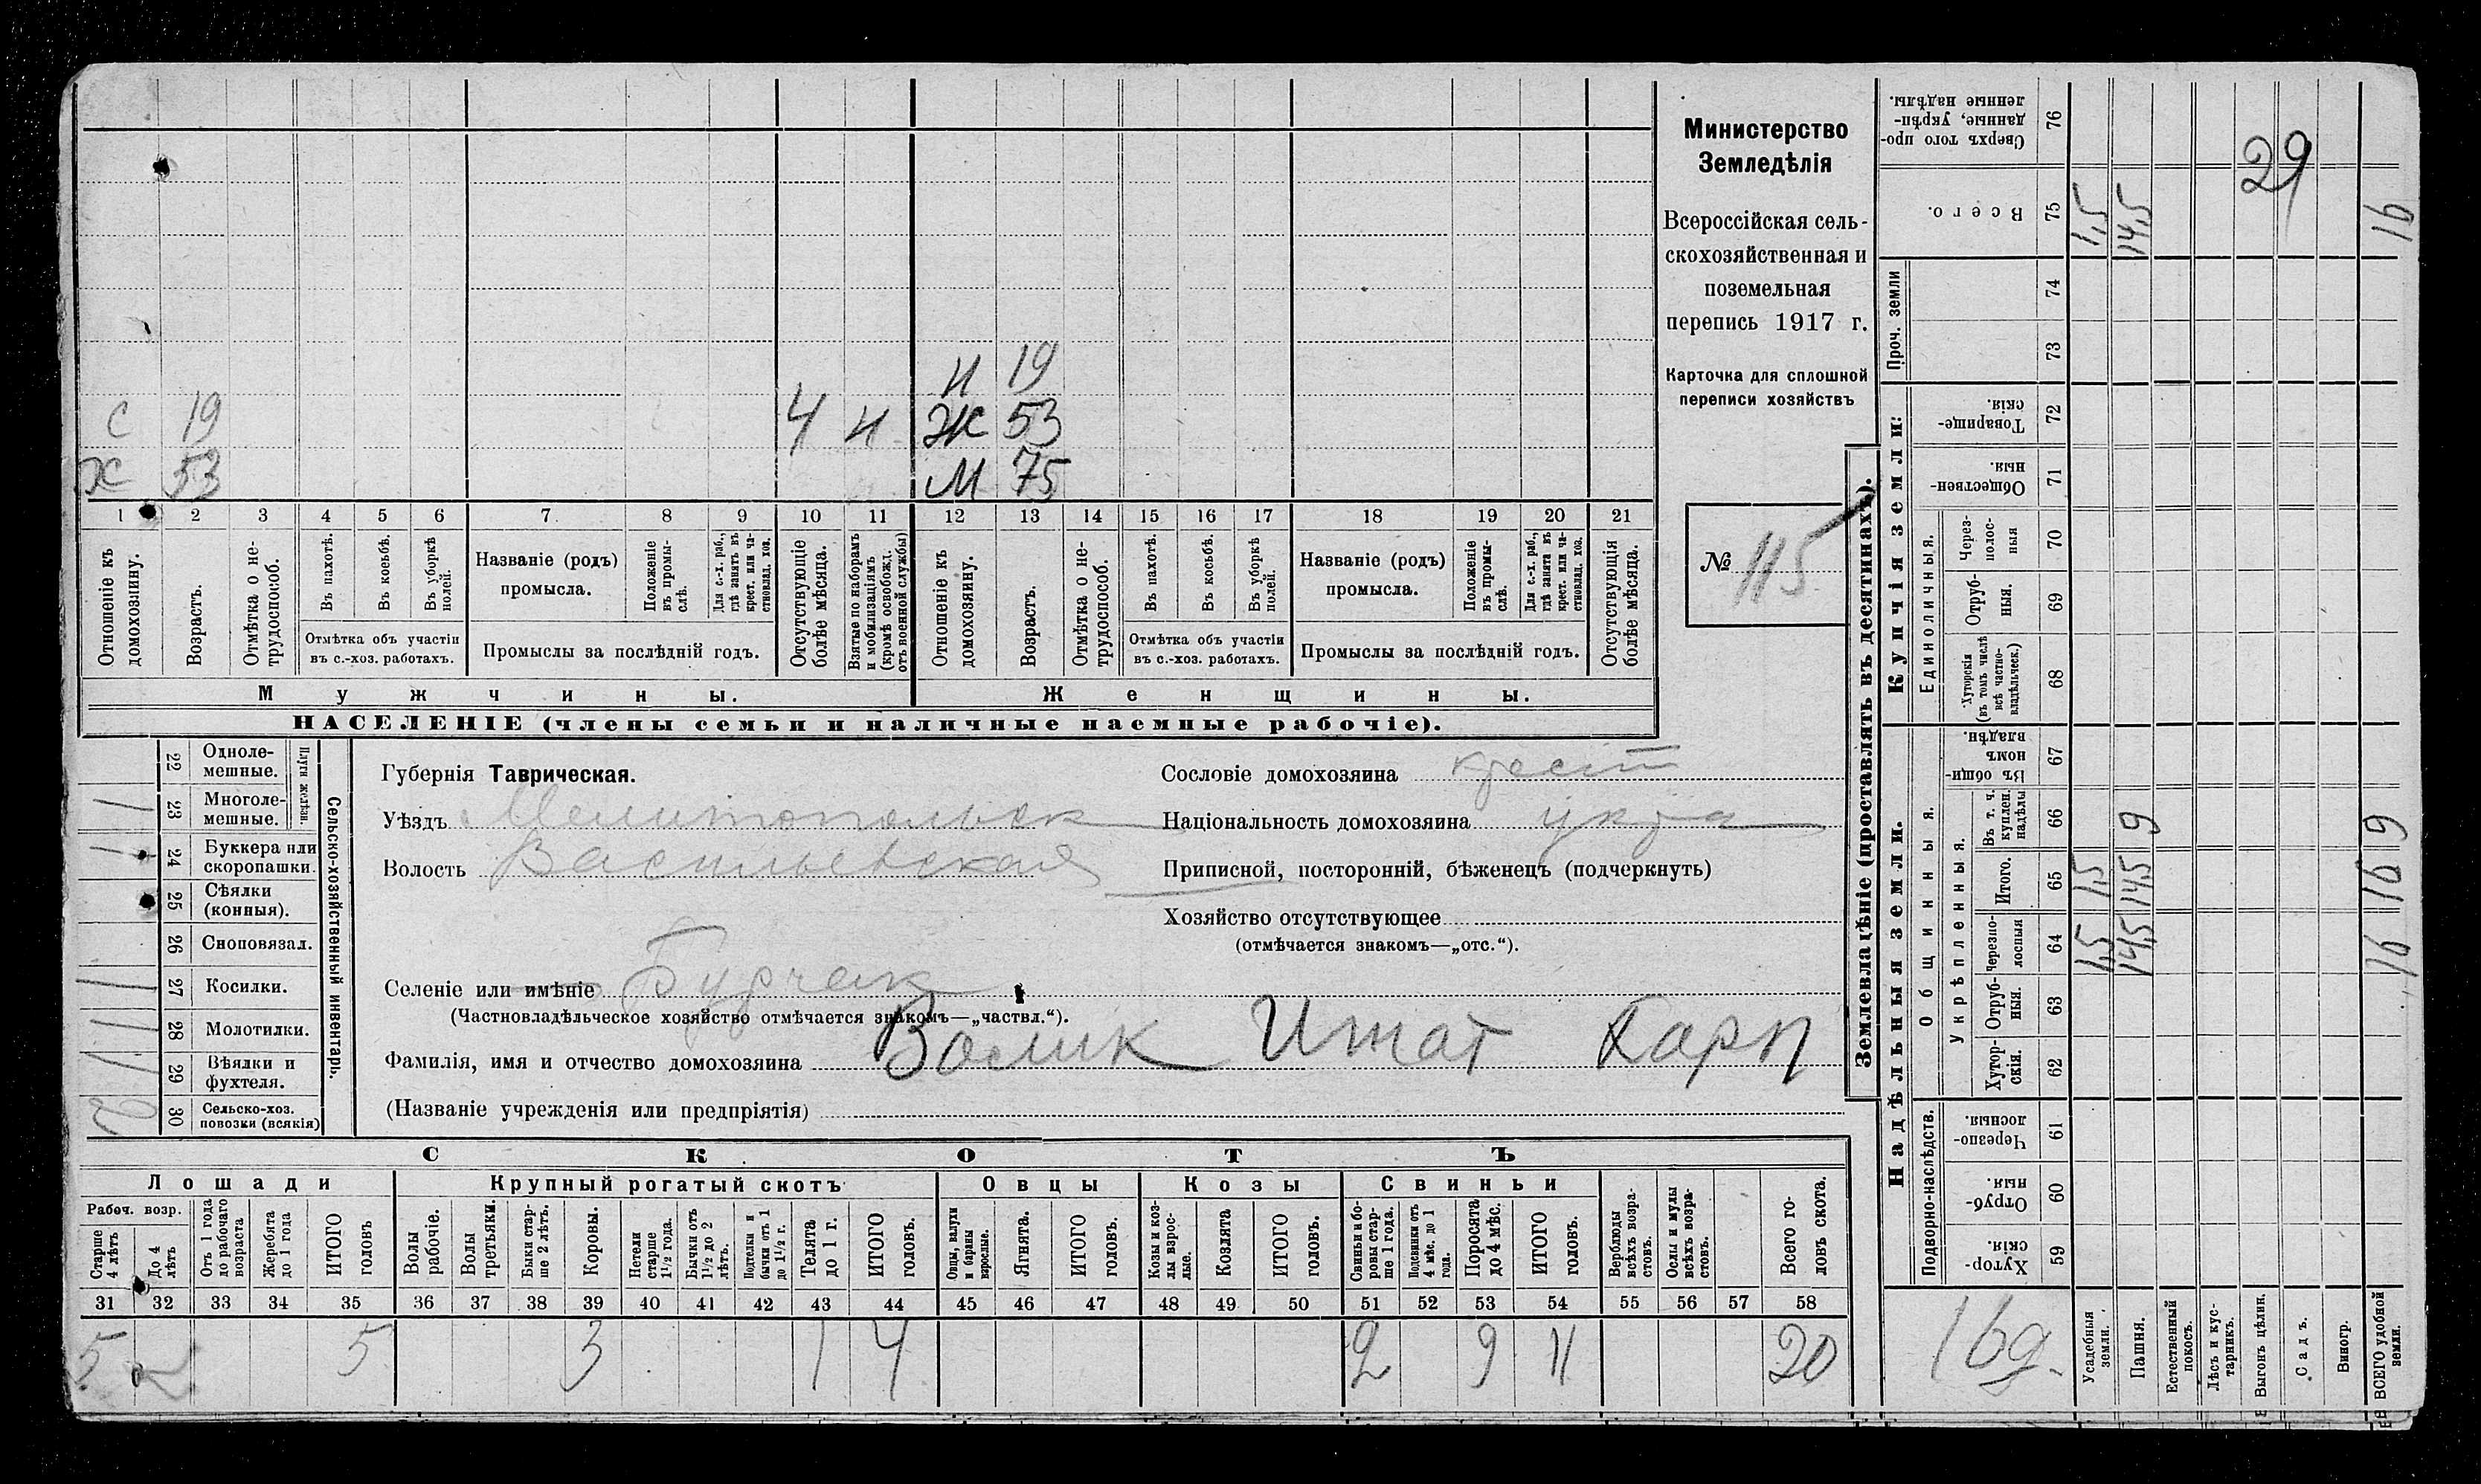 Министерство
Земледѣлія
Всероссійская сель-
скохозяйственная и
поземельная
перепись 1917 г.
Карточка для сплошной
переписи хозяйствъ
№ 115
Н 19
С 19 4 Н Ж 53
Х 53 М 75
1 2 3 4 5 6 7 8 9 10 11 12 13 14 15 16 17 18 19 20 21
Отношеніе къ домохозяину.
Возрастъ.
Отмѣтка о не-трудоспособ.
Въ пахотѣ.
Въ косьбѣ.
Въ уборкѣ полей.
Отмѣтка объ участіи въ с.-хоз. работахъ.
Названіе (родъ) промысла.
Положеніе въ промы-слѣ.
Для с.-х. раб., гдѣ занятъ въ крест. или ча-стновлад. хоз.
Промыслы за послѣдній годъ.
Отсутствующіе болѣе мѣсяца.
Взятые по наборамъ и мобилизаціямъ (кромѣ освобожд. отъ военной службы)
Отношеніе къ домохозяину.
Возрастъ.
Отмѣтка о не-трудоспособ.
Въ пахотѣ.
Въ косьбѣ.
Въ уборкѣ полей.
Отмѣтка объ участіи въ с.-хоз. работахъ.
Названіе (родъ) промысла.
Положеніе въ промы-слѣ.
Для с.-х. раб., гдѣ занята въ крест. или ча-стновлад. хоз.
Промыслы за послѣдній годъ.
Отсутствующія болѣе мѣсяца.
Мужчины. Женщины.
НАСЕЛЕНІЕ (члены семьи и наличные наемные рабочіе).
Сельско-хозяйственный инвентарь.
Плуги желѣзн.
22 Одноле-мешные.
1 23 Многоле-мешные.
1 24 Буккера или скоропашки.
25 Сѣялки (конныя).
26 Сноповязал.
1 27 Косилки.
1 28 Молотилки.
1 29 Вѣялки и фухтеля.
2 30 Сельско-хоз. повозки (всякія)
Губернія Таврическая.
Уѣздъ Мелитопольск
Волость Васильевская
Селеніе или имѣніе Бурчак
(Частновладѣльческое хозяйство отмѣчается знакомъ—„частвл.“).
Фамилія, имя и отчество домохозяина Волик Игнат Карп
(Названіе учрежденія или предпріятія)
Сословіе домохозяина крест
Національность домохозяина укра
Приписной, посторонній, бѣженецъ (подчеркнуть)
Хозяйство отсутствующее
(отмѣчается знакомъ—„отс.“).
СКОТЪ
Лошади Крупный рогатый скотъ Овцы Козы Свиньи
Рабоч. возр.
Старше 4 лѣтъ
До 4 лѣтъ
Отъ 1 года до рабочаго возраста
Жеребята до 1 года
ИТОГО головъ
Волы рабочіе.
Волы третьяки.
Быки стар-ше 2 лѣтъ.
Коровы.
Нетели старше 1½ года.
Бычки отъ 1½ до 2 лѣтъ.
Подтелки и бычки отъ 1 до 1½ г.
Телята до 1 г.
ИТОГО головъ.
Овцы, валухи и бараны взрослые.
Ягнята.
ИТОГО головъ.
Козы и коз-лы взрос-лые.
Козлята
ИТОГО головъ.
Свиньи и бо-ровы стар-ше 1 года.
Подсвинки отъ 4 мѣс. до 1 года.
Поросята до 4 мѣс.
ИТОГО головъ.
Верблюды всѣхъ возра-стовъ.
Ослы и мулы всѣхъ возра-стовъ.
Всего го-ловъ скота.
31 32 33 34 35 36 37 38 39 40 41 42 43 44 45 46 47 48 49 50 51 52 53 54 55 56 57 58
5 5 3 1 4 2 9 11 20
Землевладѣніе (проставлять въ десятинахъ).
Надѣльныя земли. Купчія земли:
Подворно-наслѣдств.
Общинныя.
Укрѣпленныя.
Единоличныя.
Проч. земли
59 Хутор-скія.
60 Отруб-ныя.
61 Черезпо-лосныя.
62 Хутор-скія.
63 Отруб-ныя.
64 Черезпо-лосныя
65 Итого.
66 Въ т. ч. куплен. надѣлы
67 Въ общин-номъ владѣн.
68 Хуторскія (въ томъ числѣ всѣ частно-владѣльческ.)
69 Отруб-ныя.
70 Через-полос-ныя
71 Обществен-ныя.
72 Товарище-скія.
73
74
75 Всего.
76 Сверхъ того про-данные, укрѣп-ленные надѣлы.
Усадебныя земли. 1,5 1,5 1,5
Пашня. 14,5 14,5 9 14,5
Естественный покосъ.
Лѣсъ и кус-тарникъ.
Выгонъ цѣлин.
Садъ.
Виногр.
ВСЕГО удобной земли. 16 16 9 16
29
16д.